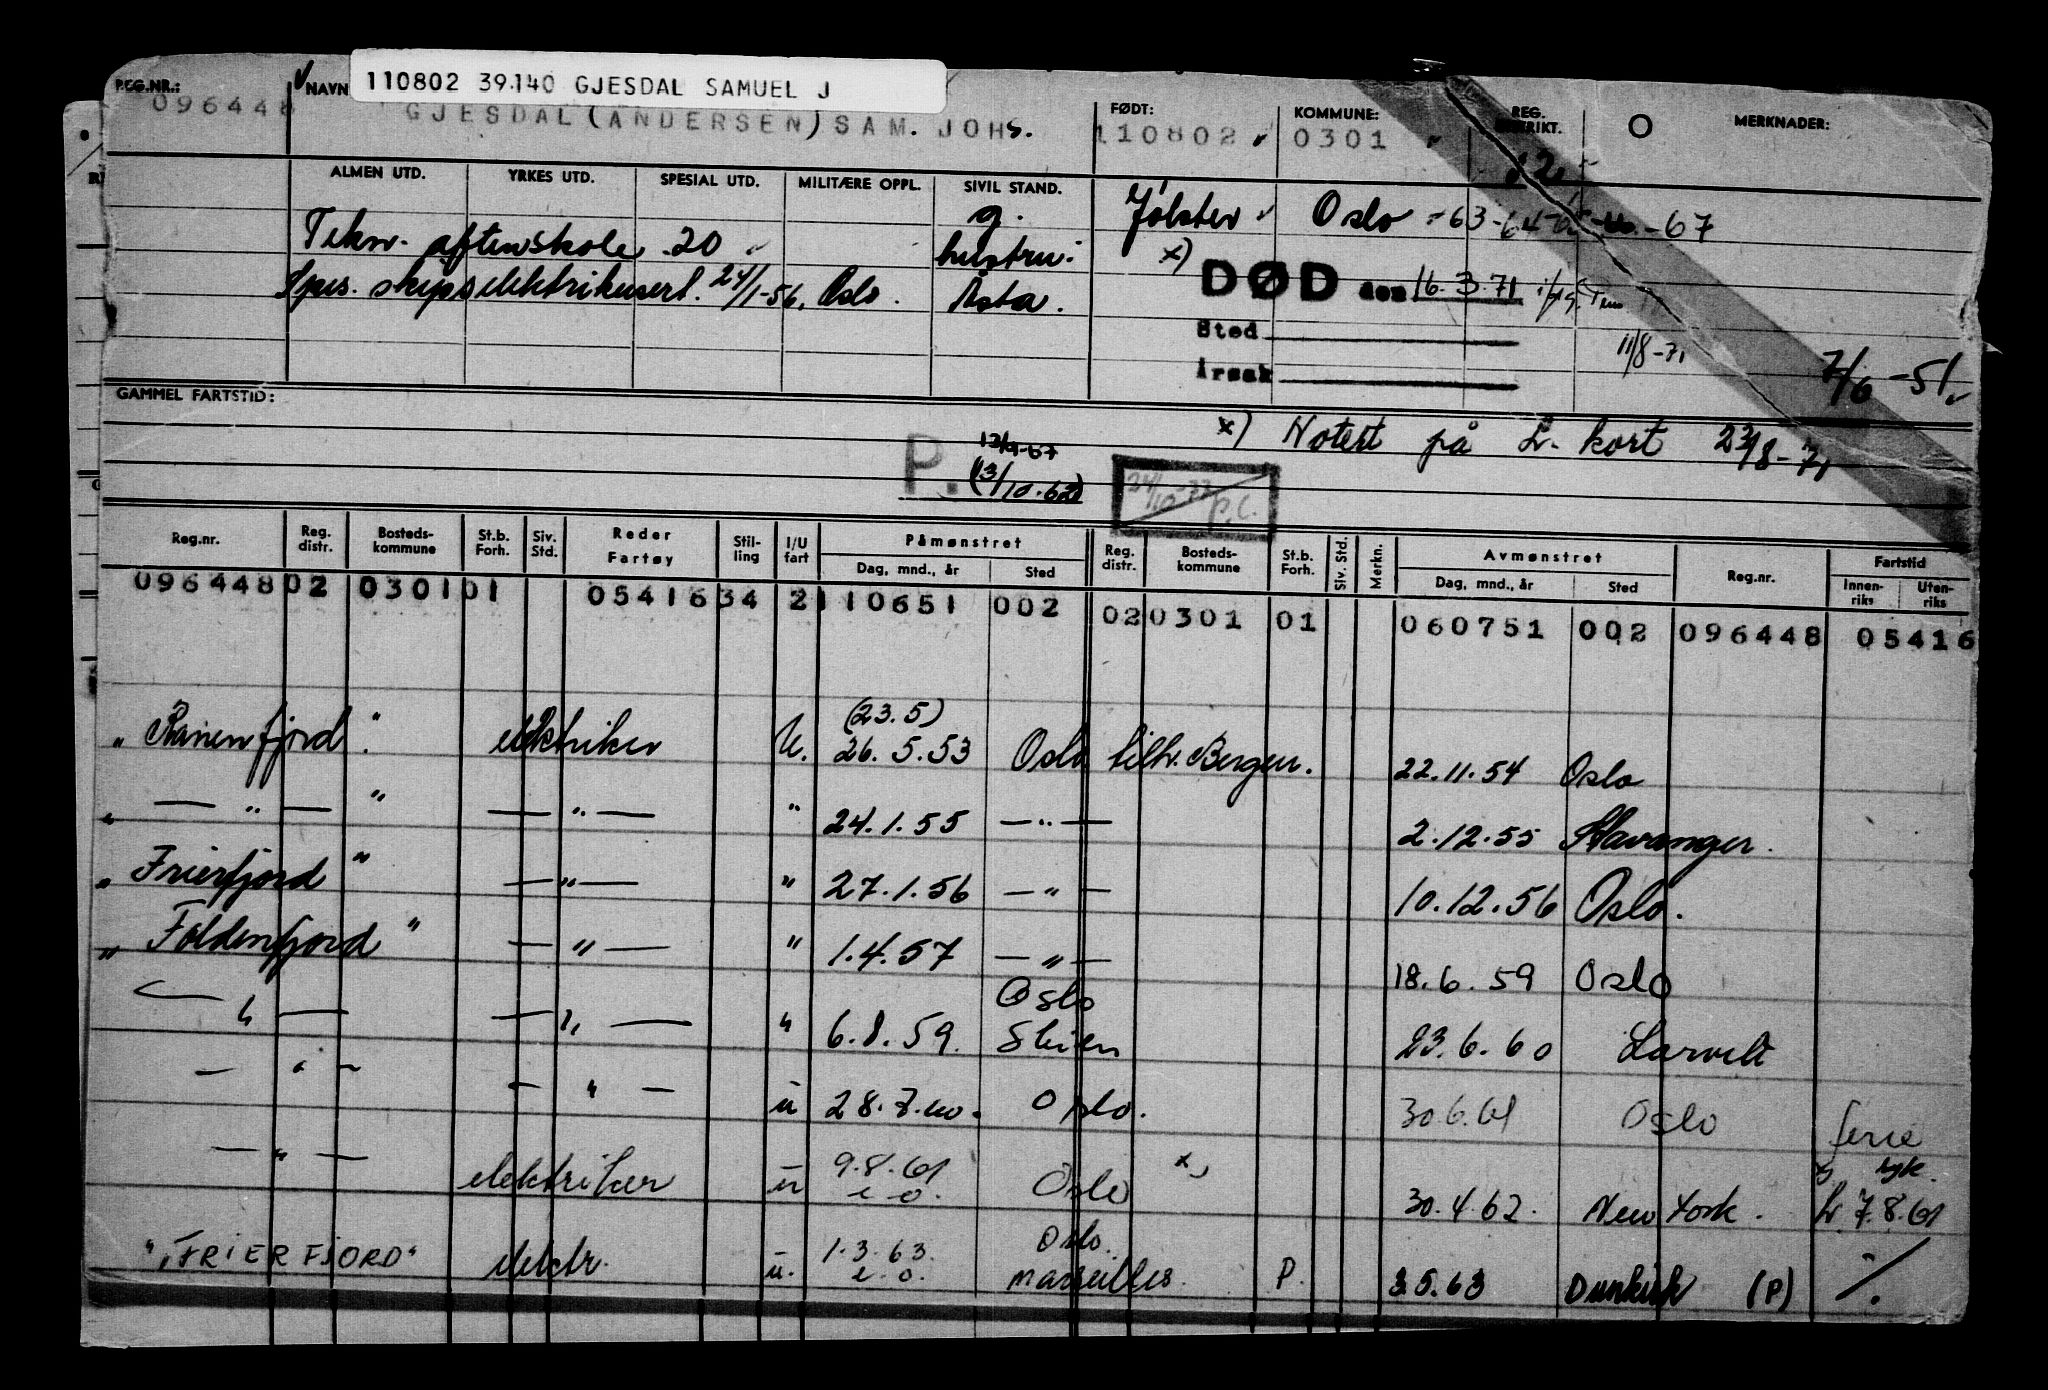 110802 39.140 GJESDAL SAMUEL J
REG.NR.: NAVN FØDT: KOMMUNE: REG. DISTRIKT. O MERKNADER:
096448 GJESDAL (ANDERSEN) SAM. JOHS. 110802 0301
ALMEN UTD. YRKES UTD. SPESIAL UTD. MILITÆRE OPPL. SIVIL STAND.
Tekn. aftenskole 20 g. Jölster Oslo -63-64-65-66-67
hustru:
Spes. skipselektrikersert. 24/1-56, Oslo. Åsta. x) DØD den 16.3.71
Sted 11/8-71
Årsak 7/6-51
GAMMEL FARTSTID:
x) Notert på L. kort 23/8-71
P. 12/9-67
(3/10.62) 24/10-72 P.C.
Reg.nr. Reg. distr. Bosteds-kommune St.b. Forh. Siv. Std. Reder Fartøy Stil-ling I/U fart Påmønstret Reg. distr. Bosteds-kommune St.b. Forh. Siv. Std. Merkn. Avmønstret Reg.nr. Fartstid
Dag, mnd., år Sted Dag, mnd., år Sted Innen-riks Uten-riks
096448 02 0301 01 05416 34 2 110651 002 02 0301 01 060751 002 096448 05416
(23.5)
"Ranenfjord" elektriker U. 26.5.53 Oslo tilh. Bergen. 22.11.54 Oslo
— " — " — " — " 24.1.55 — " — 2.12.55 Stavanger.
"Frierfjord" — " — " 27.1.56 — " — 10.12.56 Oslo.
"Foldenfjord" — " — " 1.4.57 — " — 18.6.59 Oslo
Oslo
— " — — " — " 6.8.59. Skien 23.6.60 Larvik
— " — — " — u 28.7.60. Oslo. 30.6.61 Oslo ferie
— " — elektriker u 9.8.61 Oslo x) 30.4.62. New York. L 7.8.61
e.o.
"FRIERFJORD" elektr. u. 1.3.63. Oslo.
e.o. Marseilles. P. 3.5.63 Dunkirk (P) -/.